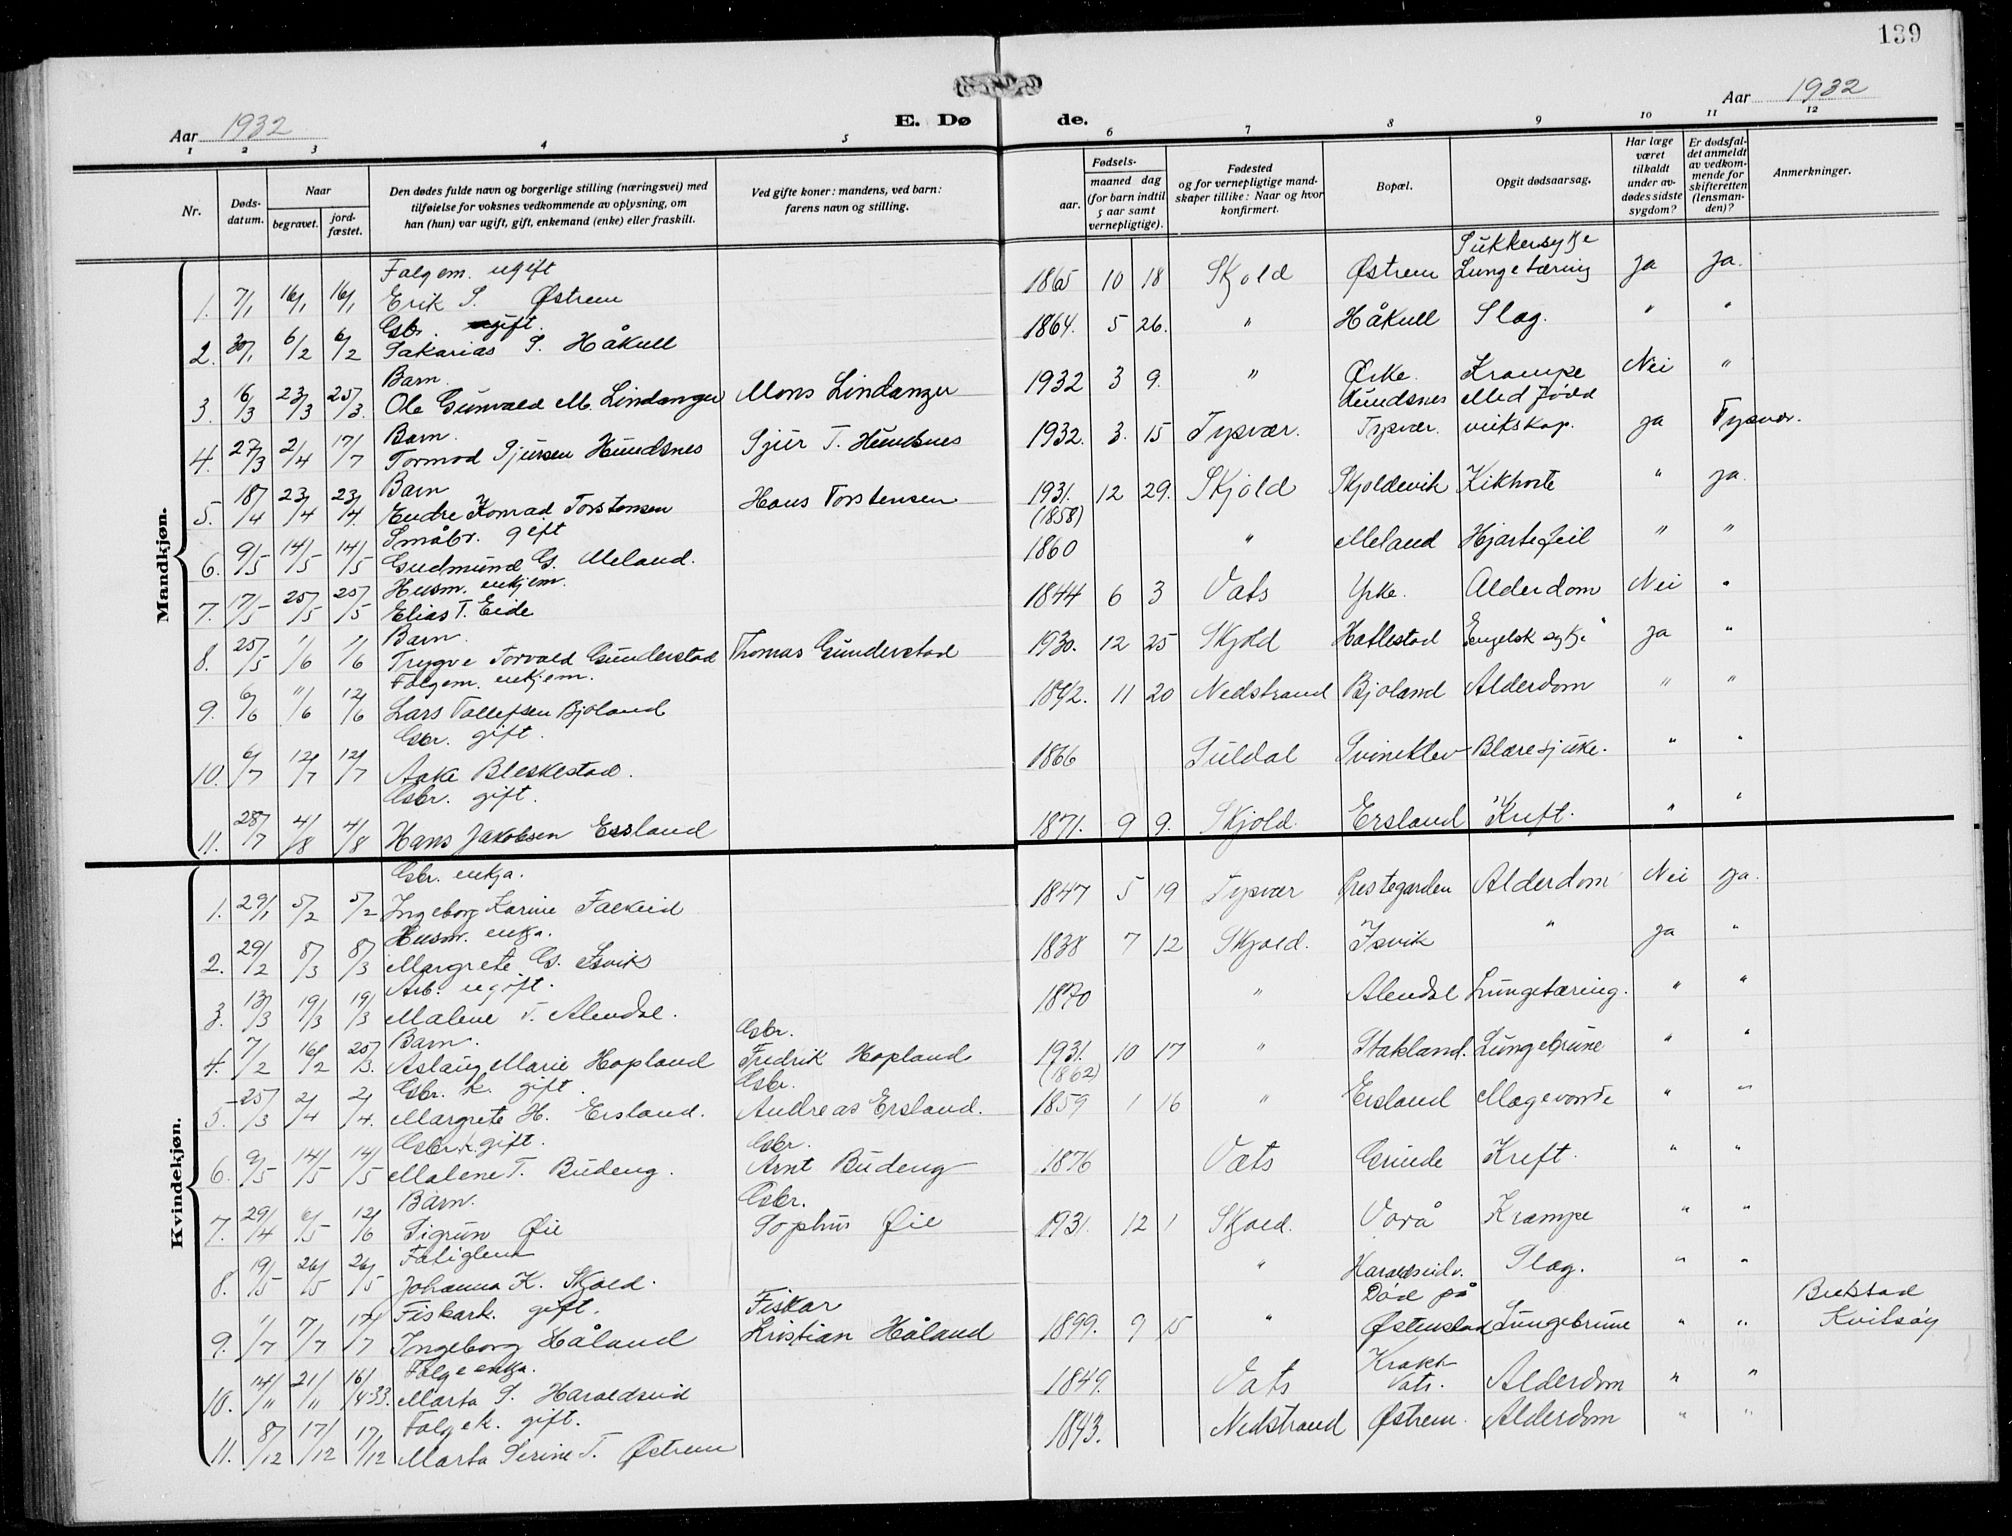 139
Aar 1932
E. Døde.
Aar 1932
1 2 3 4 5 6 7 8 9 10 11 12
Nr.
Døds-
datum.
Naar
begravet.
jord-
fæstet.
Den dødes fulde navn og borgerlige stilling (næringsvei) med
tilføielse for voksnes vedkommende av oplysning, om
han (hun) var ugift, gift, enkemand (enke) eller fraskilt.
Ved gifte koner: mandens, ved barn:
farens navn og stilling.
Fødsels-
aar.
maaned dag
(for barn indtil
5 aar samt
vernepligtige).
Fødested
og for vernepligtige mand-
skaper tillike: Naar og hvor
konfirmert.
Bopæl.
Opgit dødsaarsag.
Har læge
været
tilkaldt
under av-
dødes sidste
sygdom?
Er dødsfal-
det anmeldt
av vedkom-
mende for
skifteretten
(lensman-
den)?
Anmerkninger.
Mandkjøn.
Folgem. ugift Sukkersykje
1. 7/1 16/1 16/1 Erik S. Østrem 1865 10 18 Skjold Østrem Lungetæring ja ja.
Gbr. gift.
2. 30/1 6/2 6/2 Sakarias S. Håkull 1864. 5 26. " Håkull Slag. " "
Barn.
3. 16/3 23/3 25/3. Ole Gunvald M. Lindanger Mons Lindanger 1932 3 9. " Ørke. Krampe Nei "
Barn. Hundsnes Med född
4. 27/3 2/4 17/7 Tormod Sjursen Hundsnes Sjur T. Hundsnes 1932. 3. 15 Tysvær. Tysvær. veikskap. ja Tysvær.
Barn
5. 18/4 23/4 23/4 Endre Konrad Torstensen Hans Torstensen 1931. 12 29. Skjold Skjoldevik Kikhoste " ja.
Småbr. gift (1858)
6. 9/5 14/5 14/5 Gudmund G. Meland. 1860 " Meland Hjartefeil " "
Husm. enkjem.
7. 17/5 25/5 25/5 Elias T. Eide 1844 6 3 Vats Yrke. Alderdom Nei "
Barn.
8. 25/5 1/6 1/6 Trygve Torvald Gunderstad Thomas Gunderstad 1930. 12 25 Skjold Hatlestad Engelsk sykje ja "
Folgem. enkjem.
9. 6/6 11/6 12/6 Lars Tollefsen Bjoland 1842. 11 20 Nedstrand Bjoland Alderdom " "
Gbr. gift.
10. 6/7 12/7 12/7 Aake Bleskestad. 1866 Suldal Svineklev Blæresjuke. " "
Gbr. gift.
11. 28/7 4/8 4/8 Hans Jakobsen Ersland 1871. 9 9. Skjold. Ersland Kreft. " "
Kvindekjøn.
Gbr. enkja.
1. 29/1 5/2 5/2 Ingeborg Karine Falkeid 1847 5 19 Tysvær Prestegarden Alderdom Nei ja.
Husm. enkja.
2. 29/2 8/3 8/3 Margrete G. Isvik 1838 7 12 Skjold. Isvik " ja "
Arb. ugift.
3. 13/3 19/3 19/3 Malene T. Alendal. 1870 " Alendal Lungetæring. " "
Barn. Gbr.
4. 7/2 16/2 25/3. Aslaug Marie Hopland Fredrik Hopland 1931. 10 17 " Stakland. Lungebrune " "
Gbr. k. gift. Gbr. (1862)
5 25/3 2/4 2/4. Margrete H. Ersland. Andreas Ersland. 1859 1 16 " Ersland Magevonde " "
Gbr.k. gift. Gbr.
6. 9/5 14/5 14/5 Malene T. Budeng. Arnt Budeng 1876 Vats Grinde Kreft. " "
Barn. Gbr.
7. 29/4 6/5 12/6 Sigrun Øie Sophus Øie 1931. 12 1 Skjold. Vorå Krampe " "
Fatiglem
8. 19/5 26/5 26/5 Johanna K. Skjold. " Haraldseidv. Slag. " "
Fiskark. gift. Fiskar Død på Bukstad
9. 1/7 7/7 17/7 Ingeborg Håland Kristian Håland 1899. 9 15 " Østenstad Lungebrune " " Kvitsøy
Folgeenkja. Krakt
10. 14/11 21/11 16/4-33. Marta S. Haraldseid 1849. Vats Vats. Alderdom " "
Folgek. gift.
11. 8/12 17/12 17/12 Marta Serine T. Østrem 1843. Nedstrand Østrem. Alderdom " "